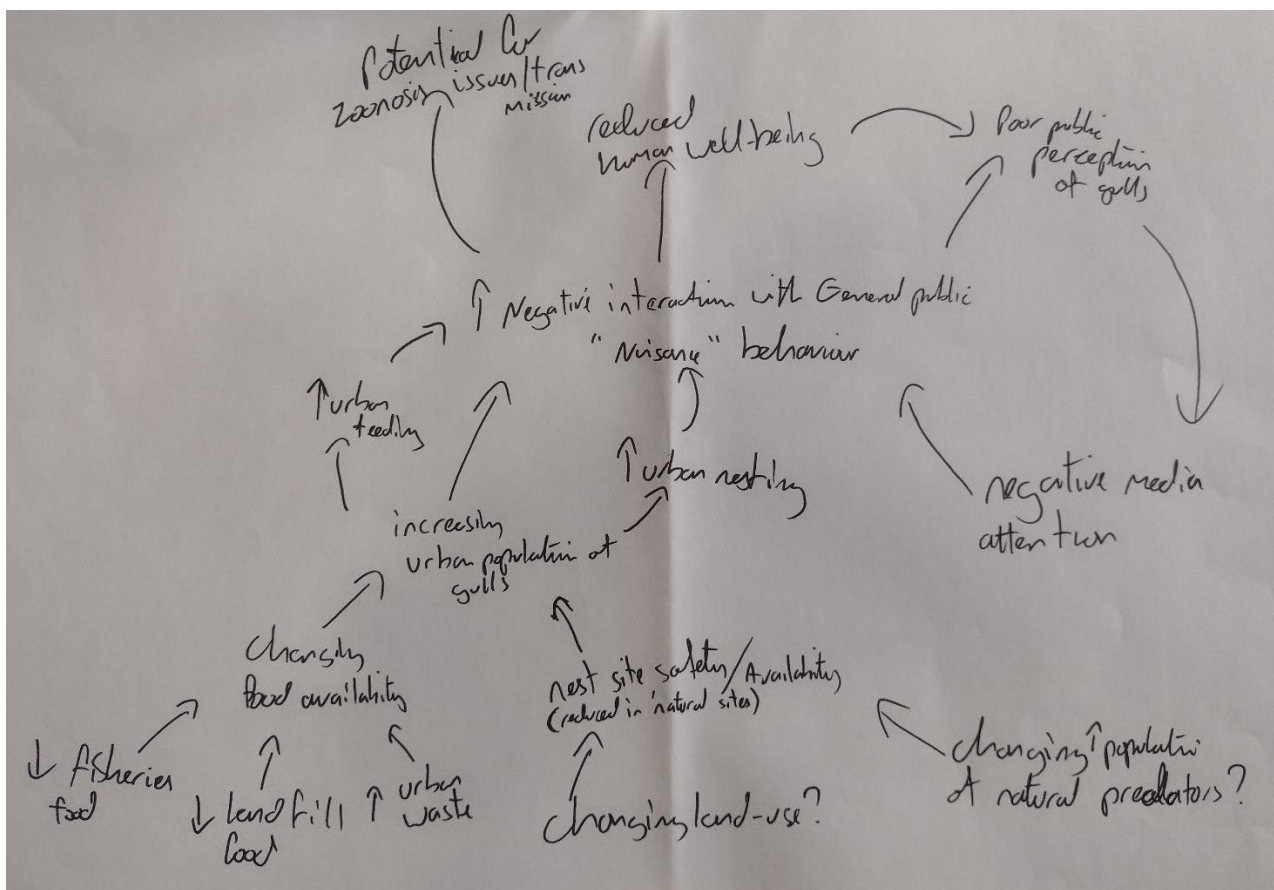 Potential for
zoonosis issues/trans
mission
reduced
human well-being
Poor public
perception
of gulls
↑ Negative interaction with General public
"Nuisance" behaviour
↑ urban
feeding
↑ urban nesting
negative media
attention
increasing
urban population of
gulls
Changing
food availability
nest site safety/Availability
(reduced in 'natural sites)
↓ fisheries
food
↓ landfill
food
↑ urban
waste
Changing land-use?
Changing ↑ population
of natural predators?